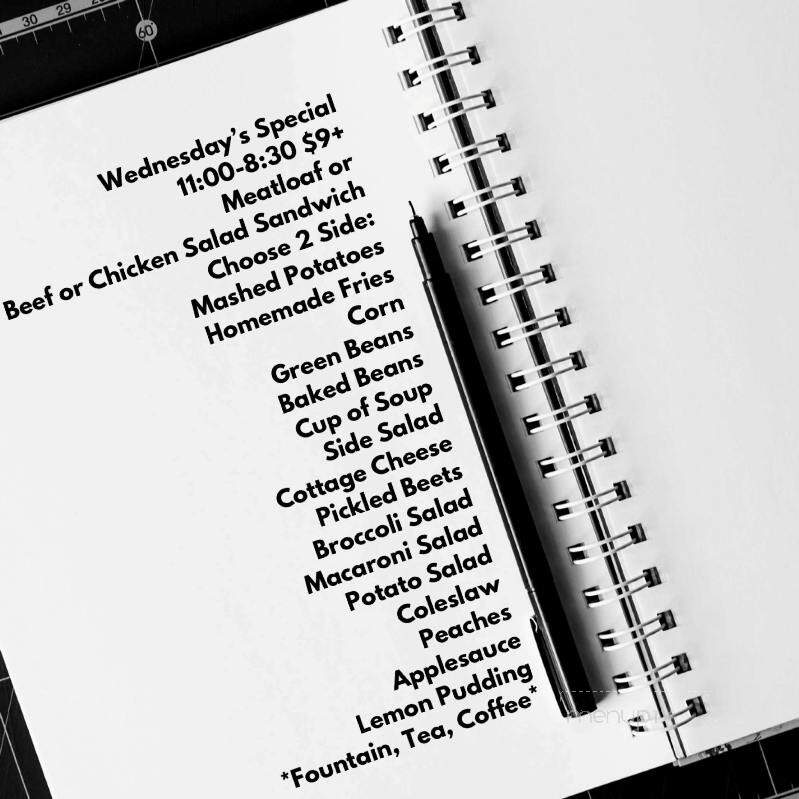 30 29
60
Wednesday's Special
11:00-8:30 $9+
Meatloaf or
Beef or Chicken Salad Sandwich
Choose 2 Side:
Mashed Potatoes
Homemade Fries
Corn
Green Beans
Baked Beans
Cup of Soup
Side Salad
Cottage Cheese
Pickled Beets
Broccoli Salad
Macaroni Salad
Potato Salad
Coleslaw
Peaches
Applesauce
Lemon Pudding
*Fountain, Tea, Coffee*